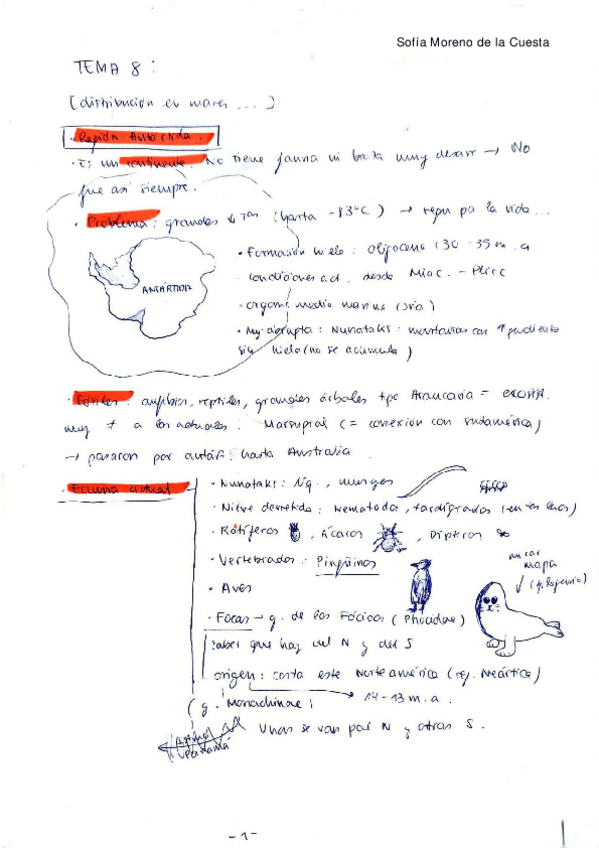 Sofía Moreno de la Cuesta
TEMA 8 :
[distribución en mares ... ]
· Región Antártida .
· Es un continente. No tiene fauna ni muy desarr → No
fue así siempre.
· Problema : grandes ↓ Tas (hasta -83°C) → repu pa la vida...
· Formación hielo : oligoceno (30 - 35 m. a
· condiciones act. desde Mioc. - Plioc
ANTÁRTIDA
· organi. medio marino
· Muy abrupta : Nunataks : montañas con ↑ pendiente
sin hielo (no se acumula)
· Fósiles : anfibios, reptiles, grandes árboles tipo Araucaria =
muy ≠ a los actuales : Marsupial (= conexión con sudamérica)
→ pasaron por antárt. hasta Australia .
· Fauna actual
· Nunataks : líq. , musgos
· Nieve derretida : Nematodos, tardígrados
· Rotíferos , Ácaros , Dípteros
· Vertebrados : Pingüinos
mirar
mapa
(filogenia)
· Aves
· Focas → g. de los Fócidos ( Phocidae )
saber que hay del N y del S
origen : costa este Norteamérica (reg. Neártica)
( g. Monachinae )
→ 14 - 13 m. a .
Panamá
Unas se van por N y otras S .
- 1 -